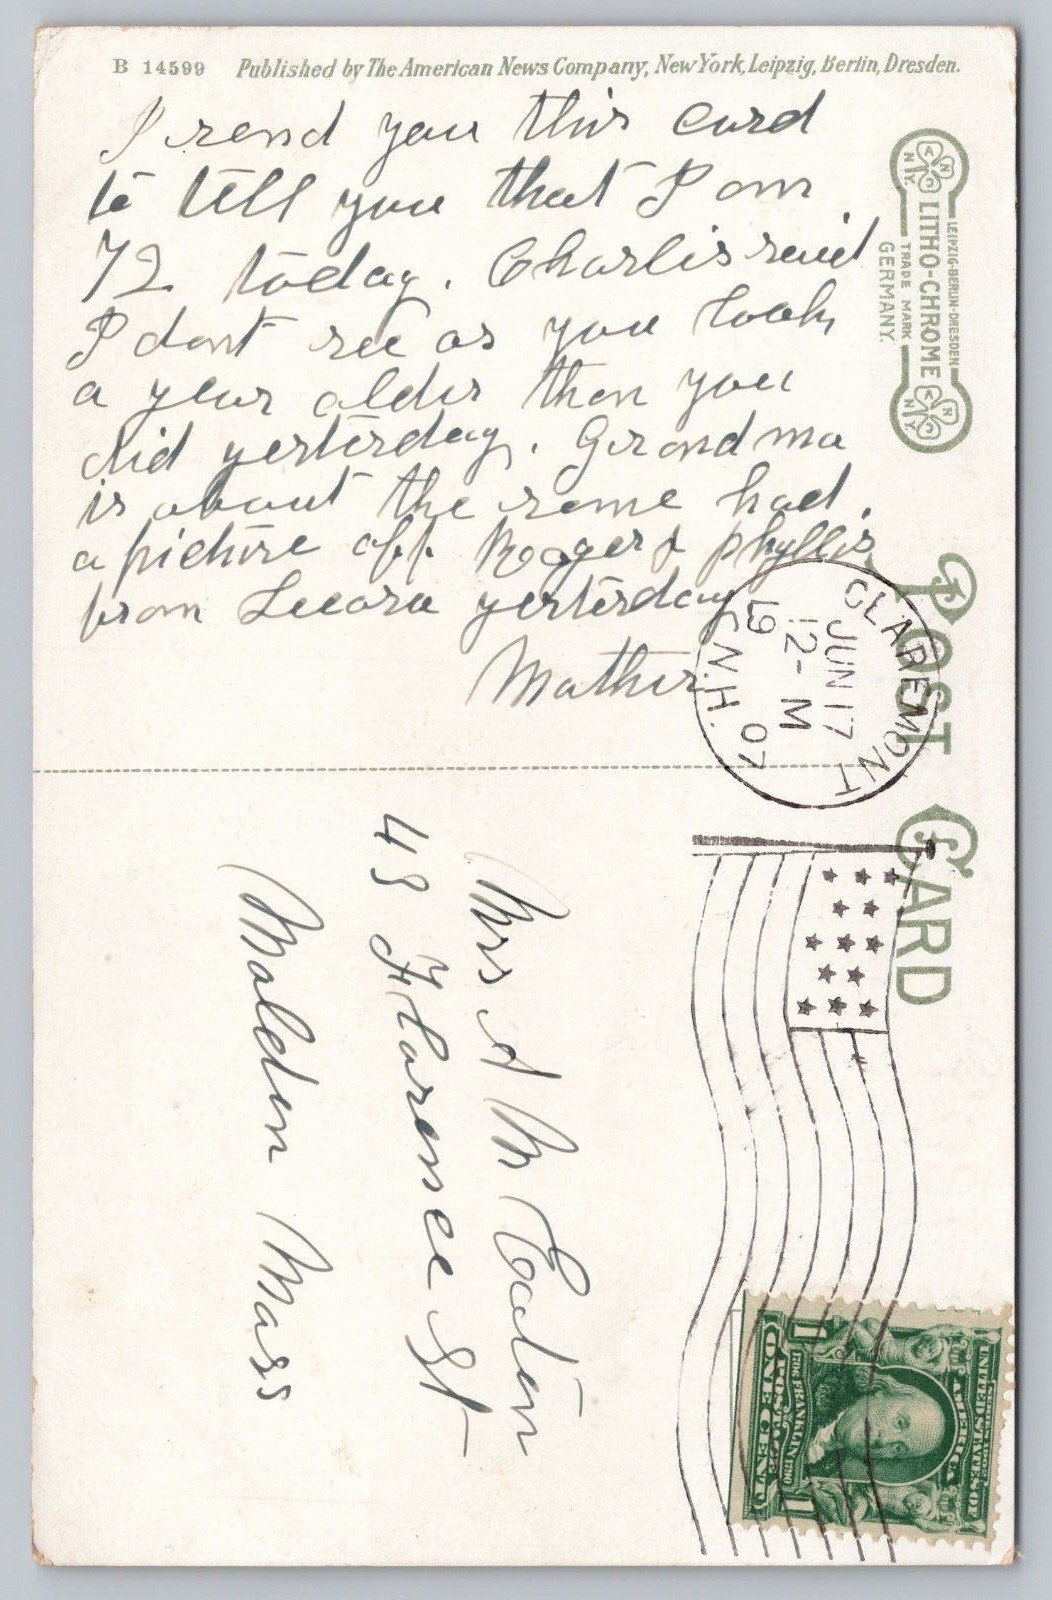 B 14599 Published by The American News Company, New York, Leipzig, Berlin, Dresden.
I send you this card
to tell you that I am
72 today. Charlis said
I dont see as you look
a year older than you
did yesterday. Grandma
is about the same had
a picture off Roger & Phyllis
from yesterday
Mother
LEIPZIG-BERLIN-DRESDEN
LITHO-CHROME
TRADE MARK
GERMANY.
A N C
N.Y.
A N C
N.Y.
POST CARD
CLAREMONT
JUN 17
12-M
07
N.H.
Mrs A M Eaton
48 Florence St
Malden Mass
UNITED STATES OF
AMERICA
FRANKLIN 1790
POSTAGE
ONE CENT
1 1